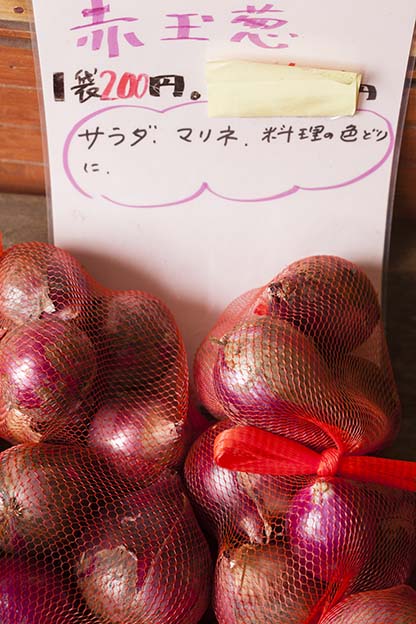 赤玉葱
1袋200円。
サラダ、マリネ、料理の色どり
に、